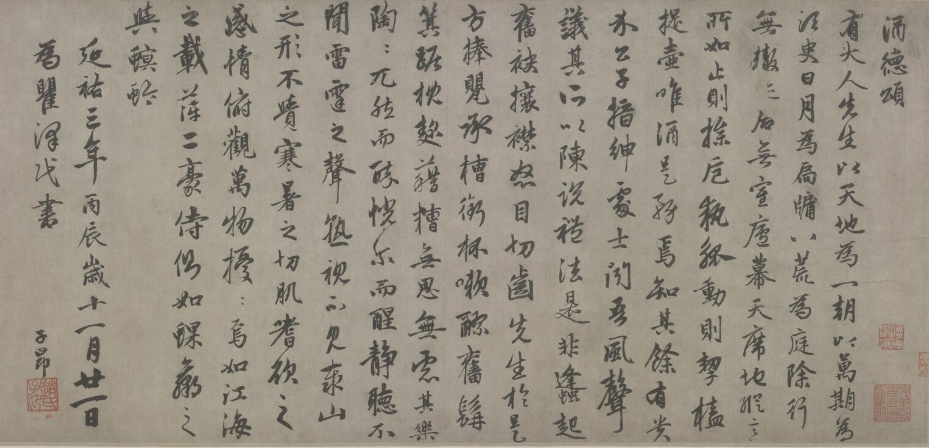 酒德頌
有大人先生以天地為一朝以萬期為
須臾日月為扃牖八荒為庭除行
無轍迹居無室廬幕天席地縱意
所如止則操卮執觚動則挈榼
提壺唯酒是務焉知其餘有貴
介公子搢紳處士聞吾風聲
議其所以陳說禮法是非蠭起
奮袂攘襟怒目切齒先生於是
方捧罌承槽銜杯漱醪奮髯
箕踞枕麴藉糟無思無慮其樂
陶〻兀然而醉恍尓而醒靜聽不
聞雷霆之聲孰視不見泰山
之形不覺寒暑之切肌嗜欲之
感情俯觀萬物擾〻焉如江海
之載萍二豪侍側如蜾蠃之
與螟蛉
延祐三年丙辰歲十一月廿一日
為瞿澤民書
子昂